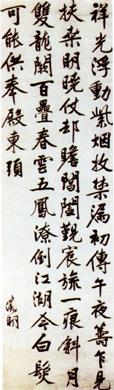 祥光浮動紫烟收禁漏初傳午夜籌乍見
扶桑明曉仗却瞻閶闔覲宸旒一痕斜月
雙龍闕百疊春雲五鳳潦倒江湖今白髮
可能供奉殿東頭
徵明